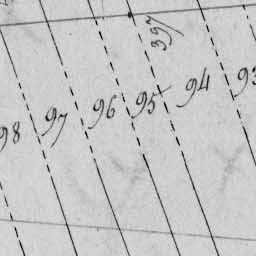 397
98 97 96 95 94 93